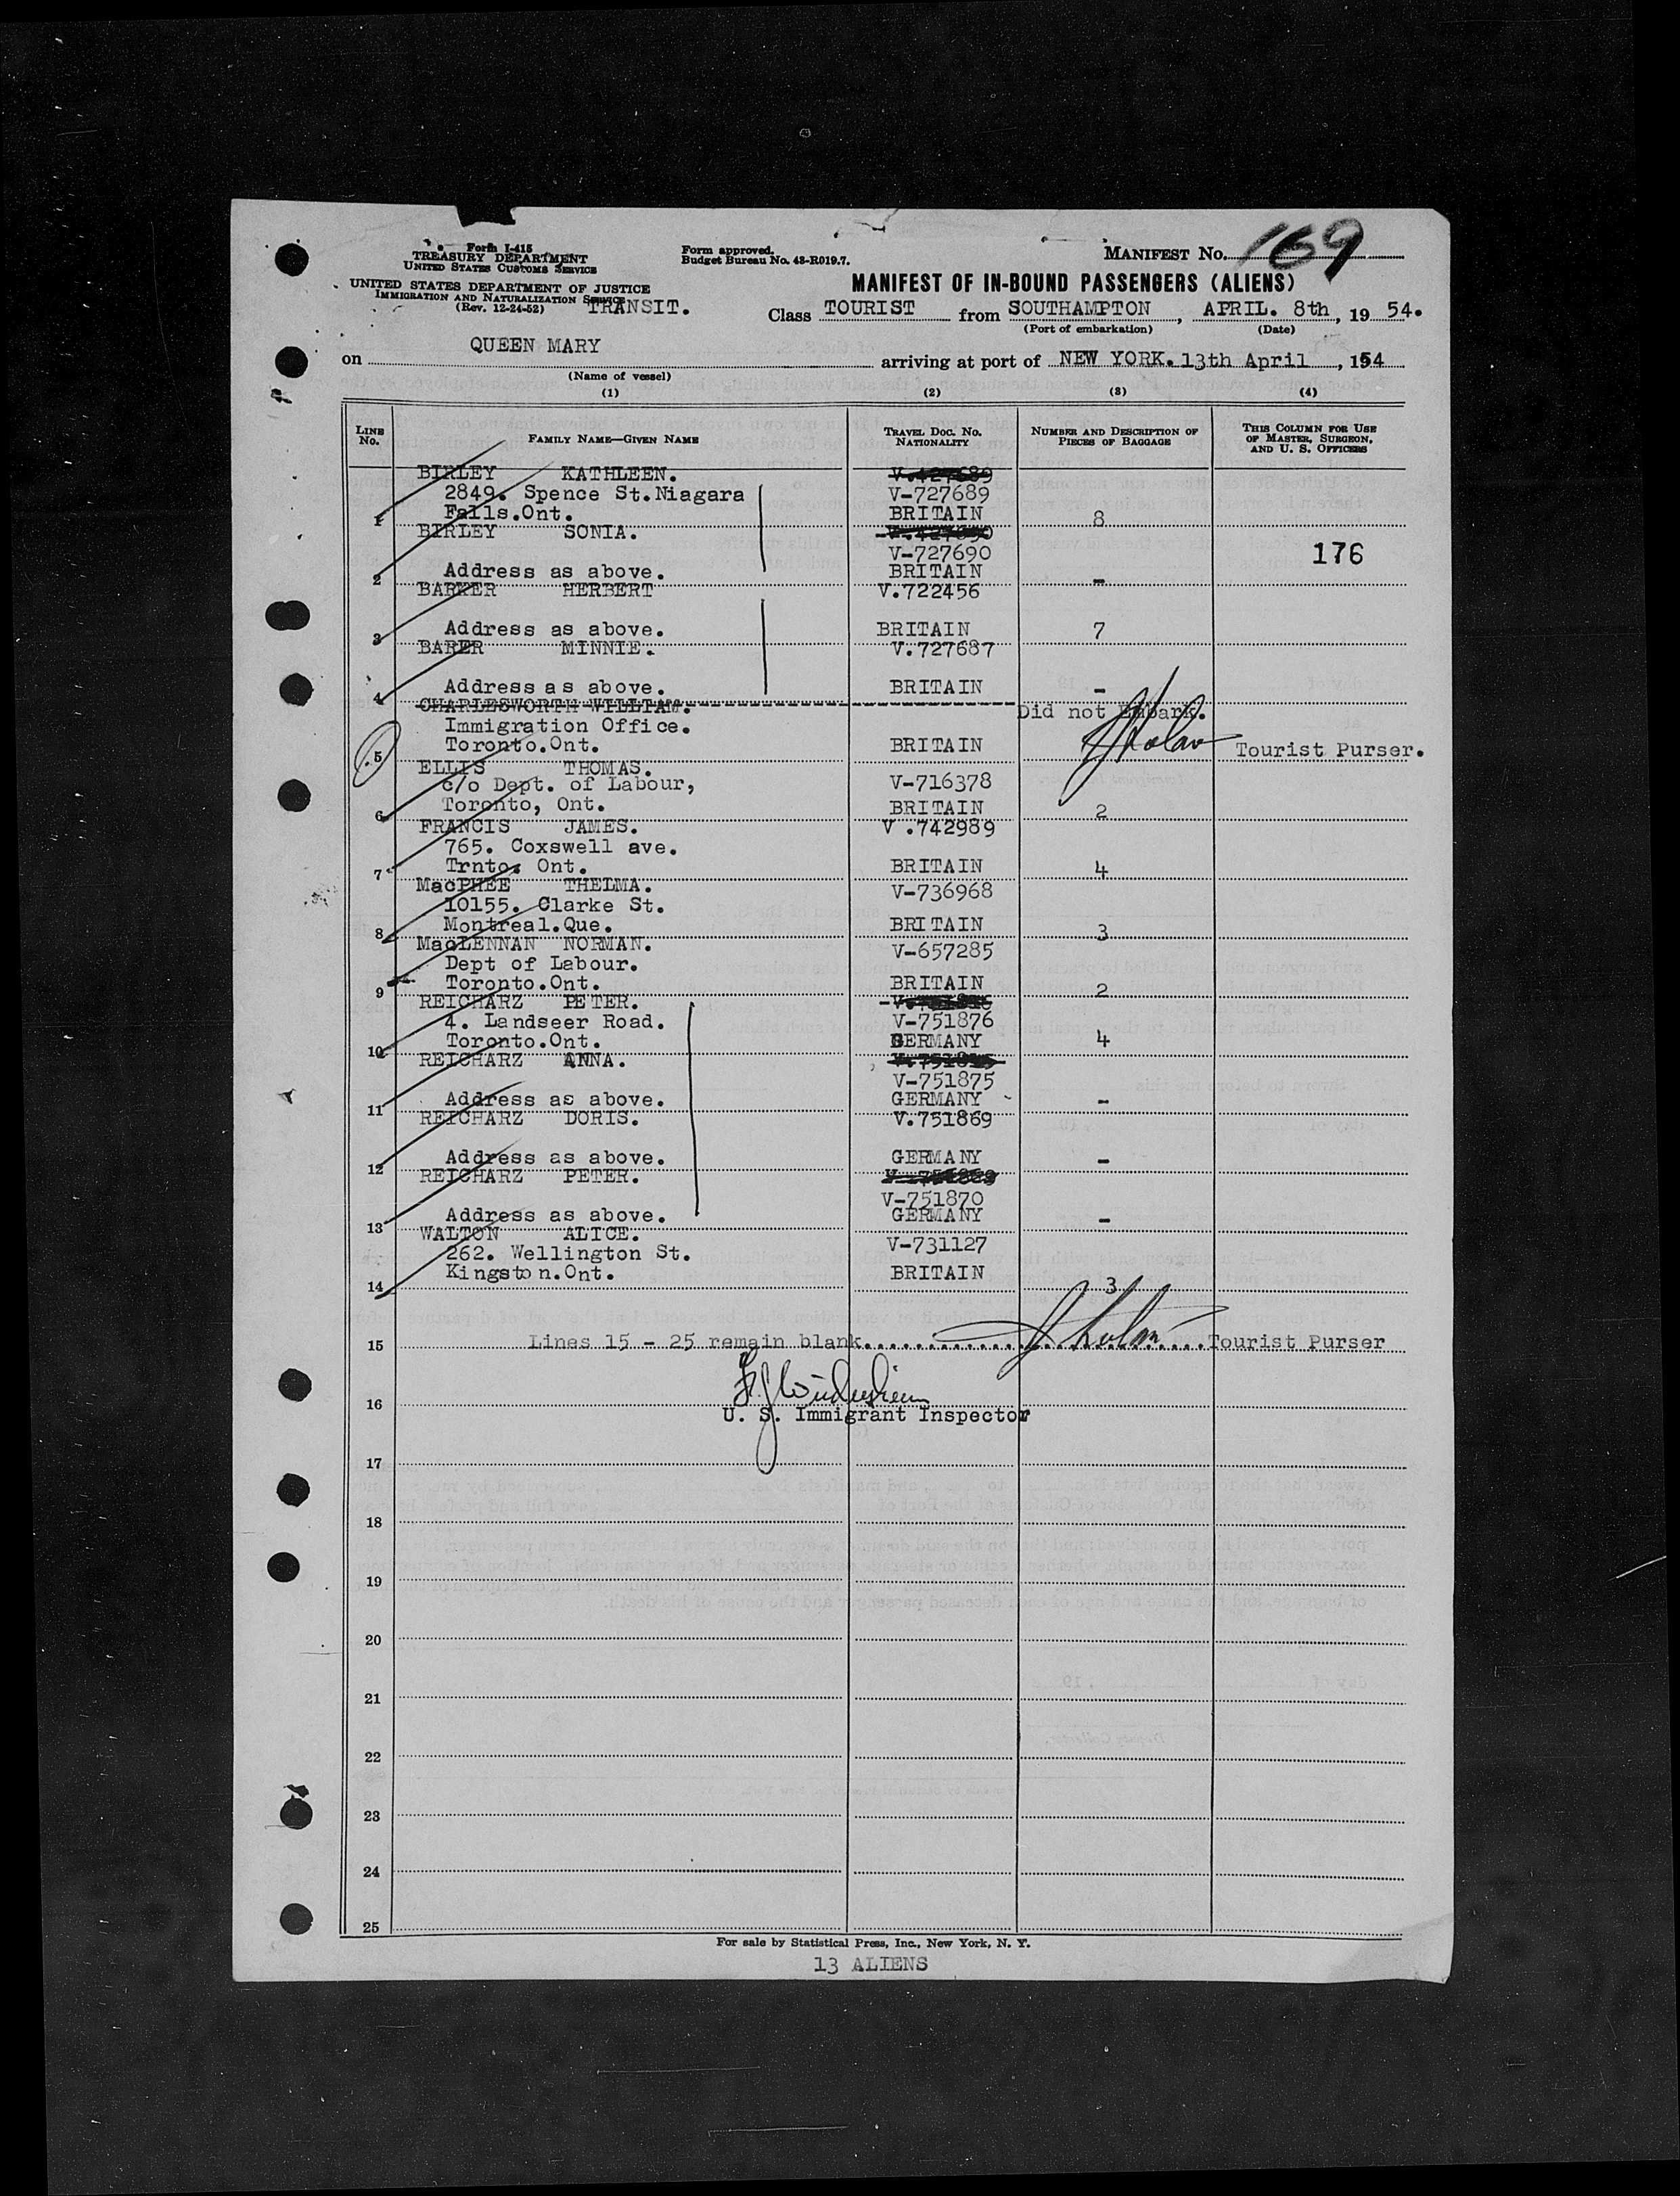 Form I-415
TREASURY DEPARTMENT
UNITED STATES CUSTOMS SERVICE
UNITED STATES DEPARTMENT OF JUSTICE
IMMIGRATION AND NATURALIZATION SERVICE
(Rev. 12-24-52)
TRANSIT.
Form approved.
Budget Bureau No. 43-R019.7.
MANIFEST No. 169
MANIFEST OF IN-BOUND PASSENGERS (ALIENS)
Class TOURIST from SOUTHAMPTON, APRIL. 8th, 19 54.
(Port of embarkation) (Date)
on QUEEN MARY arriving at port of NEW YORK. 13th April, 1954
(Name of vessel)
(1) (2) (3) (4)
LINE No. FAMILY NAME—GIVEN NAME TRAVEL DOC. NO. NATIONALITY NUMBER AND DESCRIPTION OF PIECES OF BAGGAGE THIS COLUMN FOR USE OF MASTER, SURGEON, AND U. S. OFFICERS
BIRLEY KATHLEEN. V.427689
2849. Spence St. Niagara V-727689
1 Falls. Ont. BRITAIN 8
BIRLEY SONIA. V.427690
V-727690 176
2 Address as above. BRITAIN -
BARKER HERBERT V.722456
3 Address as above. BRITAIN 7
BARER MINNIE. V.727687
4 Address as above. BRITAIN -
CHARLESWORTH WILLIAM. Did not Embark.
Immigration Office.
5 Toronto. Ont. BRITAIN Tourist Purser.
ELLIS THOMAS.
c/o Dept. of Labour, V-716378
6 Toronto, Ont. BRITAIN 2
FRANCIS JAMES. V .742989
765. Coxswell ave.
7 Trnto. Ont. BRITAIN 4
MacPHEE THELMA. V-736968
10155. Clarke St.
8 Montreal. Que. BRITAIN 3
MacLENNAN NORMAN. V-657285
Dept of Labour.
9 Toronto. Ont. BRITAIN 2
REICHARZ PETER.
4. Landseer Road. V-751876
10 Toronto. Ont. GERMANY 4
REICHARZ ANNA.
V-751875
11 Address as above. GERMANY -
REICHARZ DORIS. V.751869
12 Address as above. GERMANY -
REICHARZ PETER.
V-751870
13 Address as above. GERMANY -
WALTON ALICE. V-731127
262. Wellington St.
14 Kingston. Ont. BRITAIN 3
15 Lines 15 - 25 remain blank. Tourist Purser
16
U. S. Immigrant Inspector
17
18
19
20
21
22
23
24
25
For sale by Statistical Press, Inc., New York, N. Y.
13 ALIENS